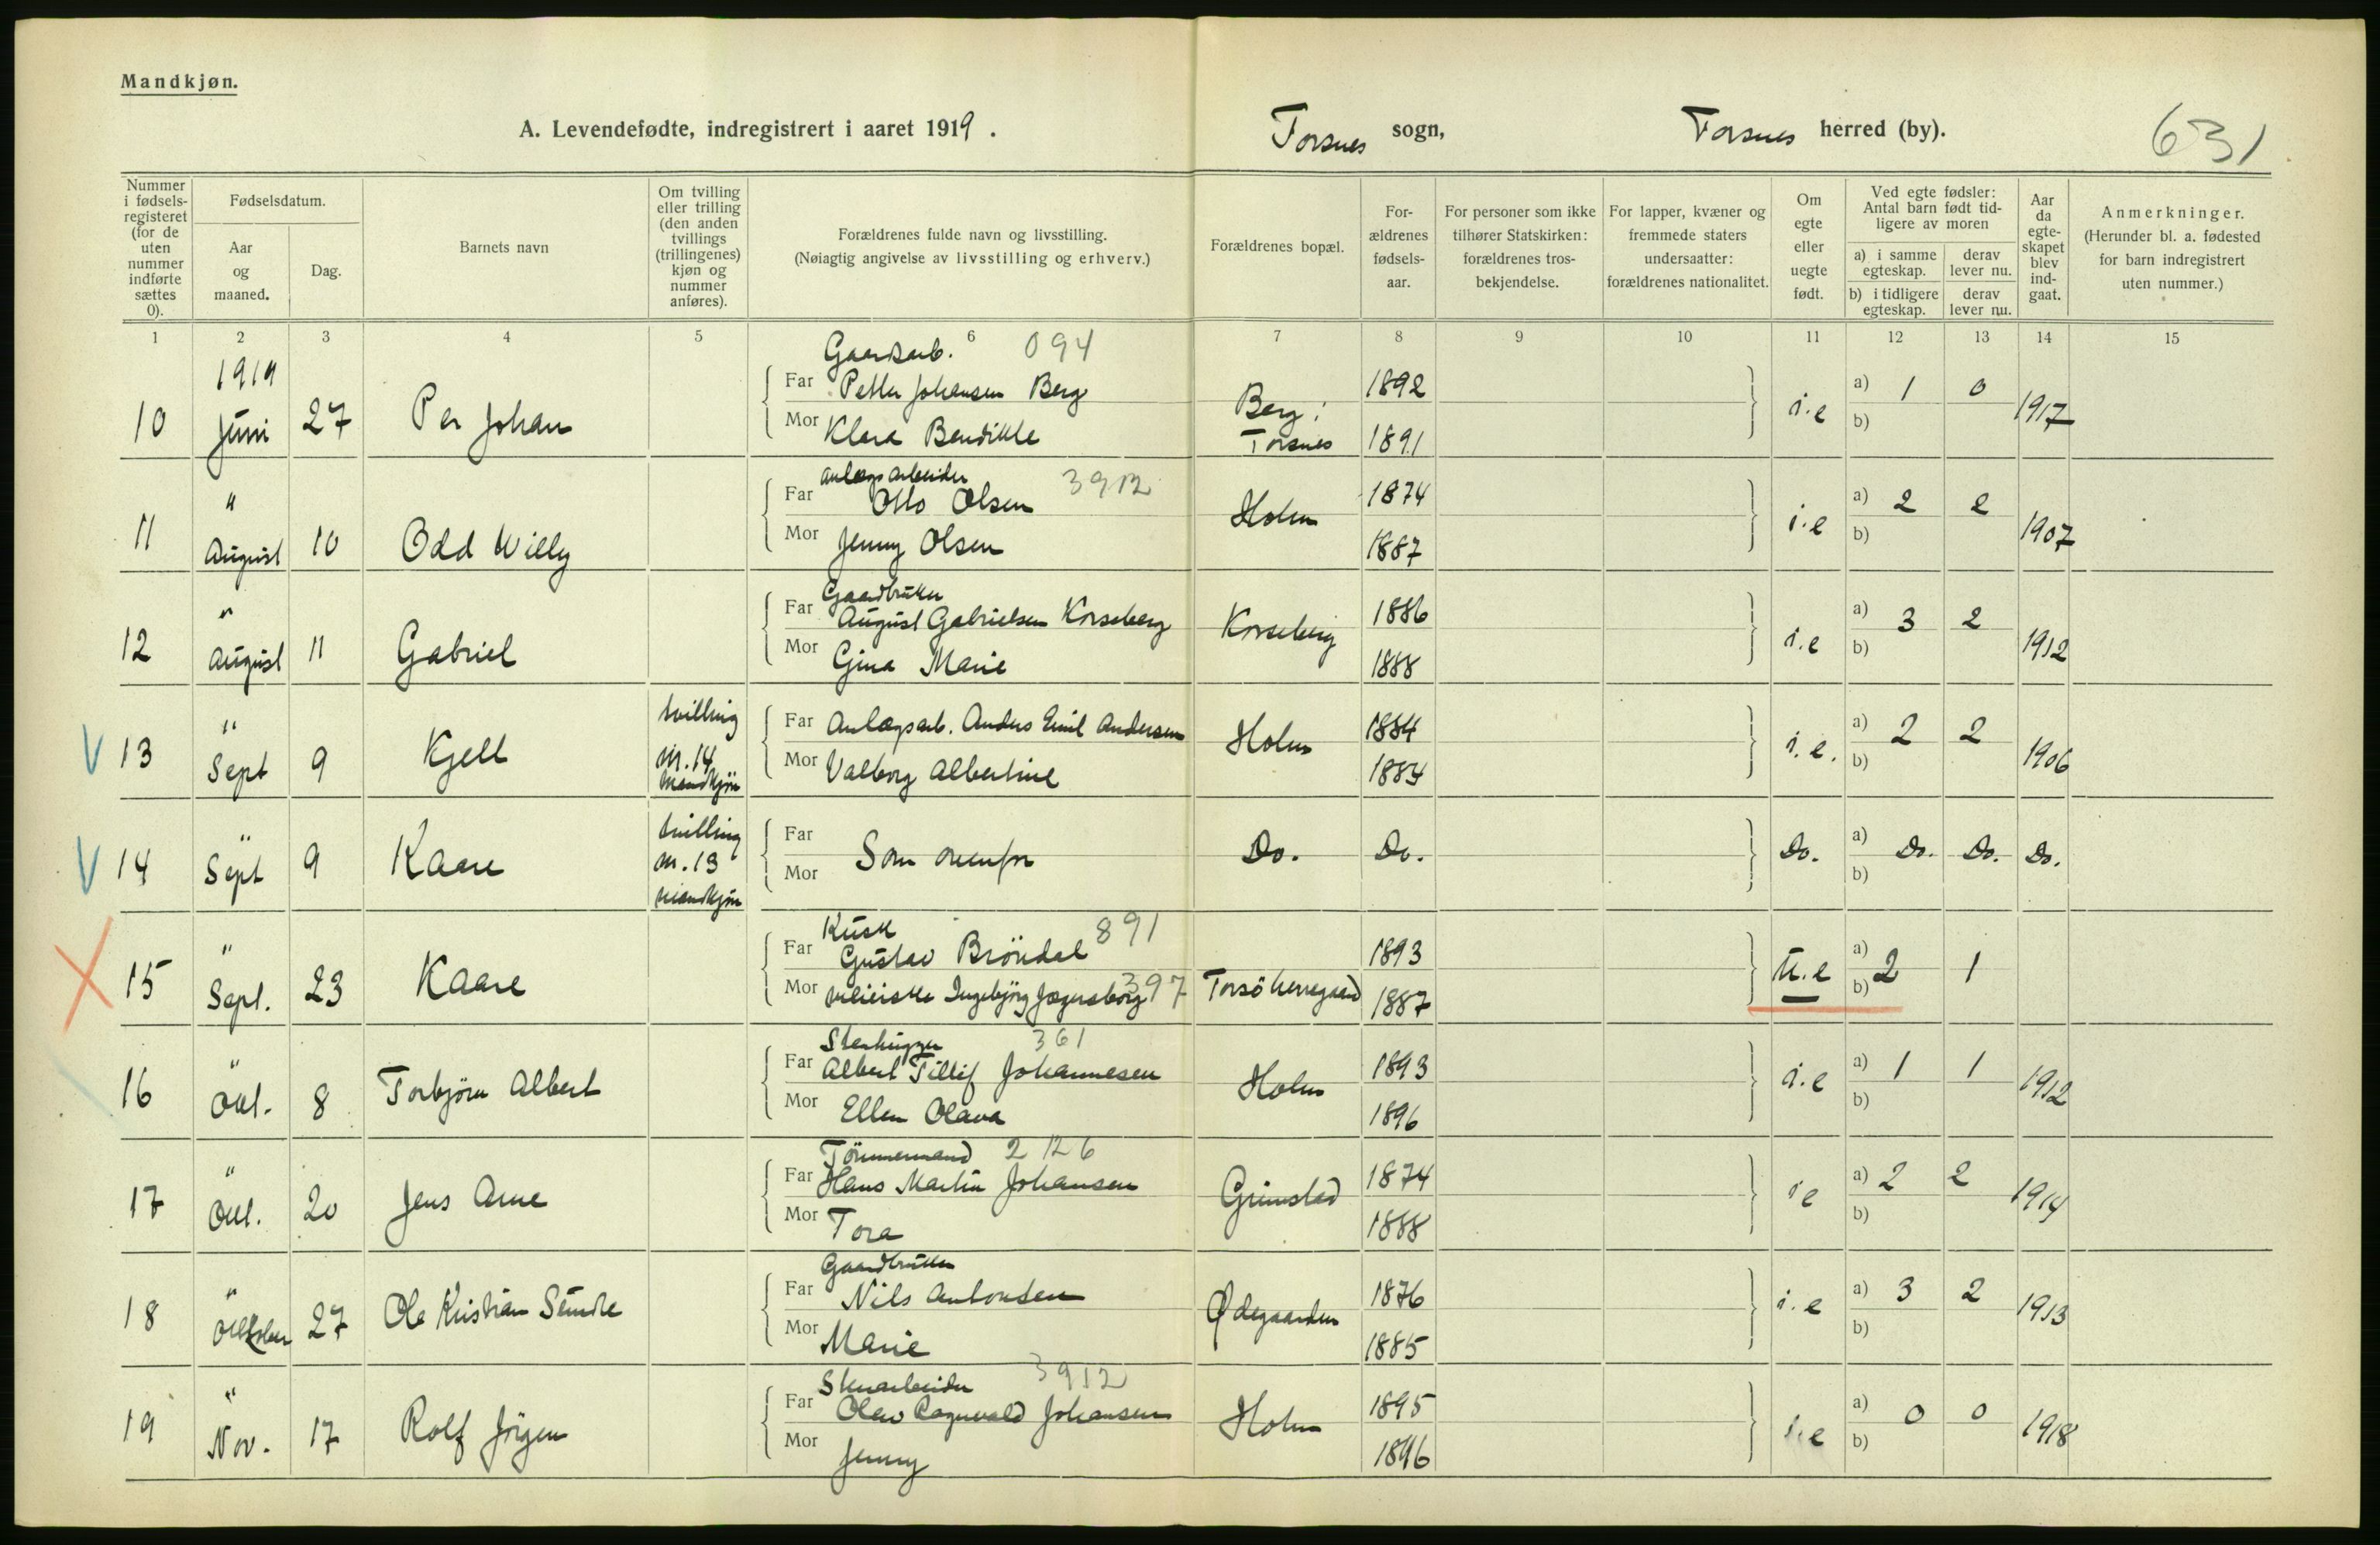 Mandkjøn.
A. Levendefødte, indregistrert i aaret 1919.
Torsnes sogn, Torsnes herred (by).
631
Nummer i fødsels-registeret (for de uten nummer indførte sættes 0).
Fødselsdatum.
Aar og maaned.
Dag.
Barnets navn
Om tvilling eller trilling (den anden tvillings (trillingenes) kjøn og nummer anføres).
Forældrenes fulde navn og livsstilling.
(Nøiagtig angivelse av livsstilling og erhverv.)
Forældrenes bopæl.
For-ældrenes fødsels-aar.
For personer som ikke tilhører Statskirken: forældrenes tros-bekjendelse.
For lapper, kvæner og fremmede staters undersaatter: forældrenes nationalitet.
Om egte eller uegte født.
Ved egte fødsler: Antal barn født tid-ligere av moren
a) i samme egteskap.
derav lever nu.
b) i tidligere egteskap.
derav lever nu.
Aar da egte-skapet blev ind-gaat.
Anmerkninger.
(Herunder bl. a. fødested for barn indregistrert uten nummer.)
1 2 3 4 5 6 7 8 9 10 11 12 13 14 15
1919
Gaardsarb. 094
10 Juni 27 Per Johan
Far Petter Johansen Berg
Mor Klara Bendikte
Berg: Torsnes
1892
1891
i.e a) 1 0 1917
b)
Anlægsarbeider 3912
11 " August 10 Odd Willy
Far Otto Olsen
Mor Jenny Olsen
Holm
1874
1887
i.e a) 2 2 1907
b)
Gaardbruker
12 " August 11 Gabriel
Far August Gabrielsen Korseberg
Mor Gina Marie
Korseberg
1886
1888
i.e a) 3 2 1912
b)
V 13 " Sept 9 Kjell
tvilling nr. 14 Mandkjön
Far Anlægsarb. Anders Emil Andersen
Mor Valborg Albertine
Holm
1884
1884
i.e. a) 2 2 1906
b)
V 14 " Sept 9 Kaare
tvilling nr. 13 Mandkjön
Far
Mor
Som ovenfor
Do. Do. Do. a) Do. Do. Do.
b)
Kusk 891
X 15 " Sept. 23 Kaare
Far Gustav Bröndal
Mor Meierske Ingebjörg Jægersborg 397
Torsö herregaard
1893
1887
U.e a)
b) 2 1
Stenhugger 361
16 " Okt. 8 Torbjörn Albert
Far Albert Tillif Johannesen
Mor Ellen Olava
Holm
1893
1896
i.e a) 1 1 1912
b)
Tömmermand 2126
17 " Okt. 20 Jens Arne
Far Hans Martin Johansen
Mor Tora
Grimstad
1874
1888
i e a) 2 2 1914
b)
Gaardbruker
18 " Oktober 27 Ole Kristian Sundte
Far Nils Antonsen
Mor Marie
Ødegaarden
1876
1885
i.e a) 3 2 1913
b)
Stenarbeider 3912
19 " Nov. 17 Rolf Jörgen
Far Olav Ragnvald Johansen
Mor Jenny
Holm
1895
1896
i.e a) 0 0 1918
b)